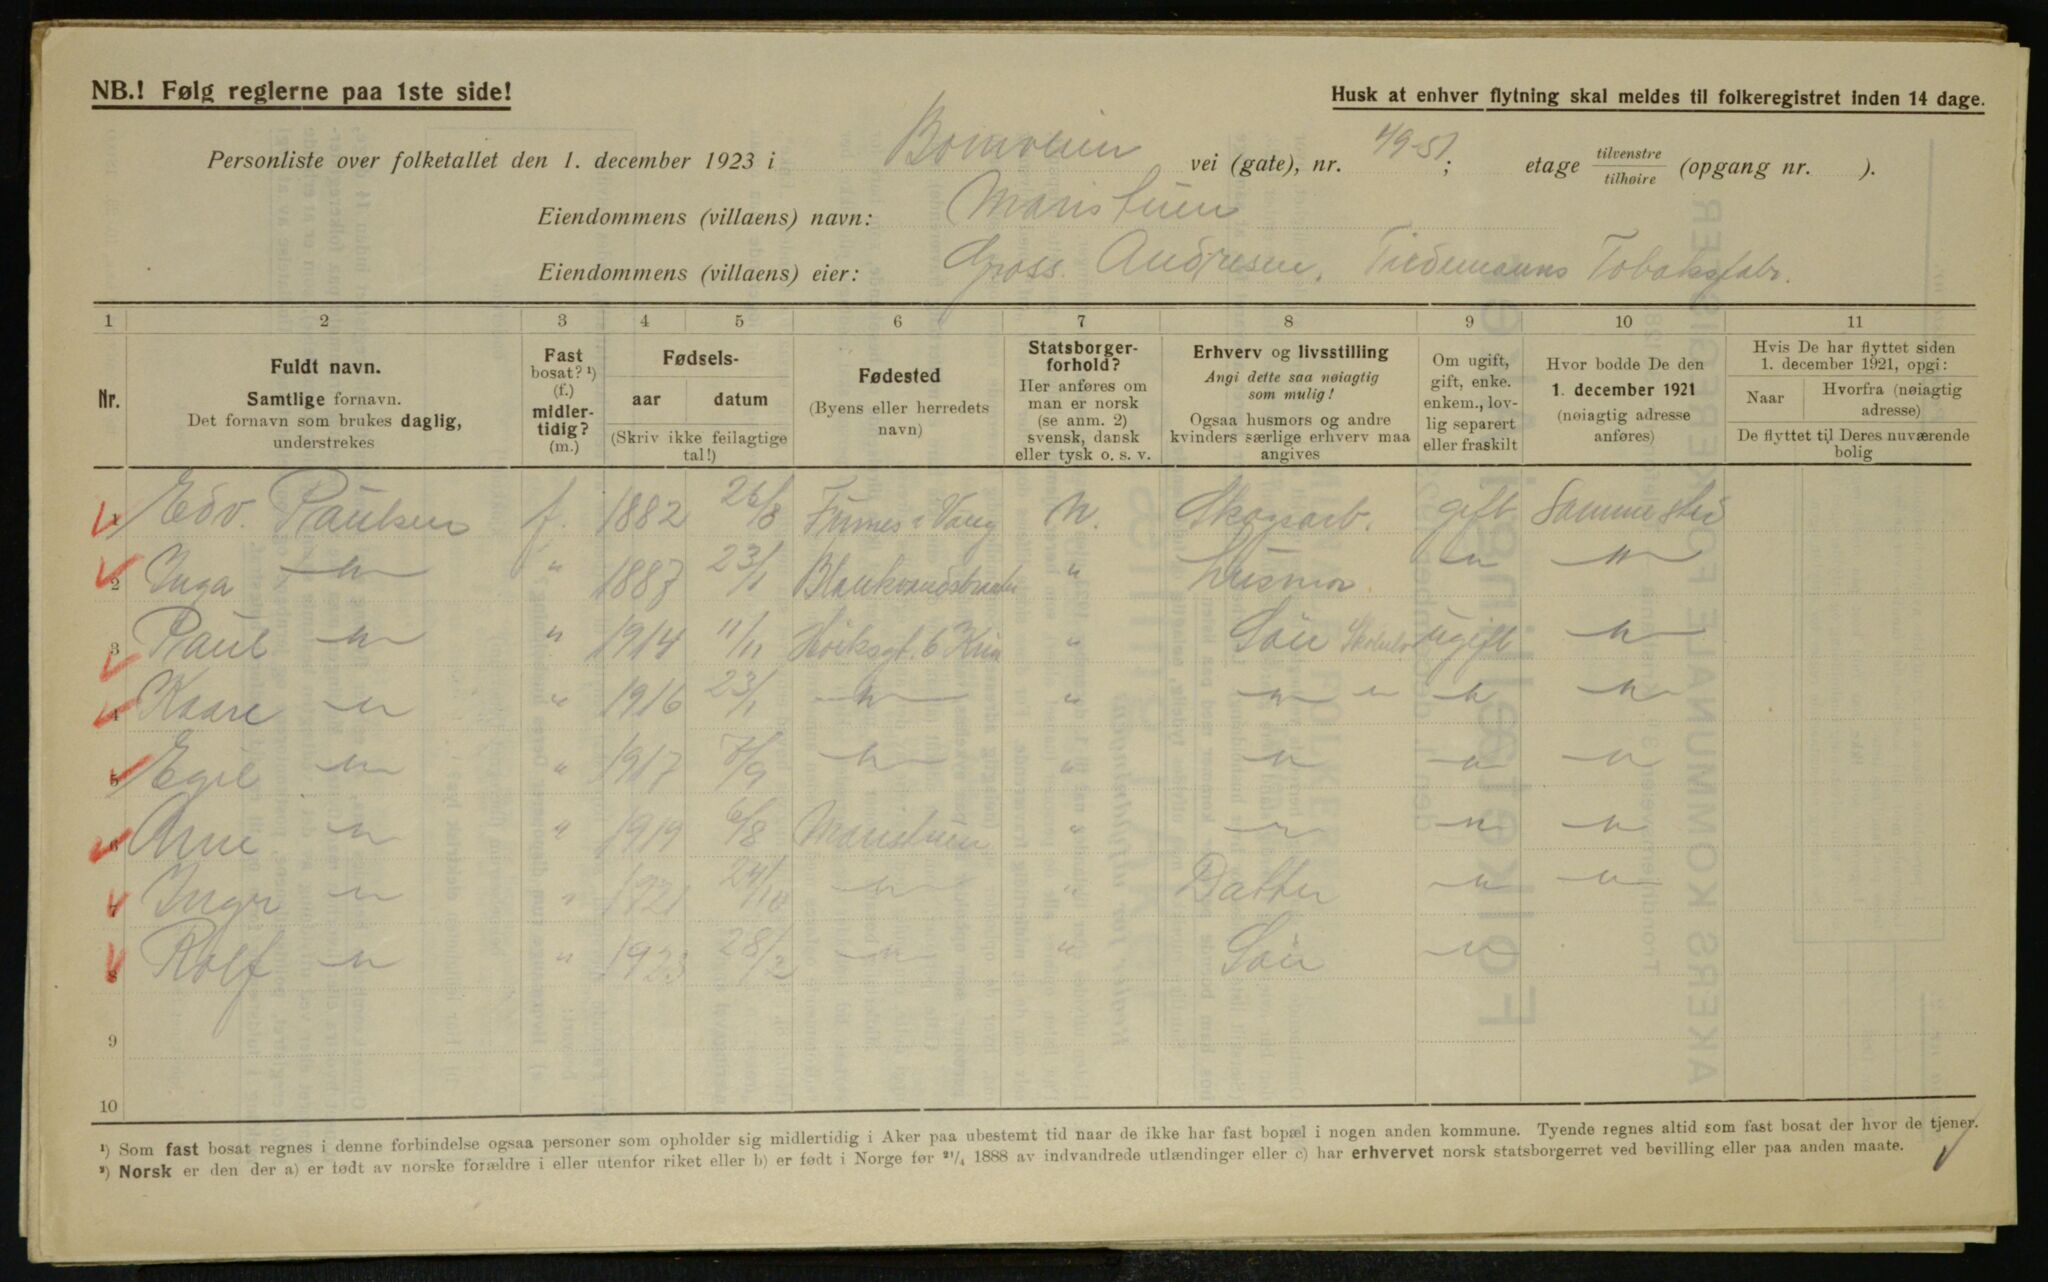 NB.! Følg reglerne paa 1ste side!
Husk at enhver flytning skal meldes til folkeregistret inden 14 dage.
Personliste over folketallet den 1. december 1923 i Bomveien vei (gate), nr. 49-51; etage tilvenstre/tilhøire (opgang nr. ).
Eiendommens (villaens) navn: Maristuen
Eiendommens (villaens) eier: Gross. Andresen, Tiedemanns Tobaksfabr.
1 2 3 4 5 6 7 8 9 10 11
Nr.
Fuldt navn.
Samtlige fornavn.
Det fornavn som brukes daglig, understrekes
Fast bosat? ¹) (f.) midlertidig? (m.)
Fødsels-
aar datum
(Skriv ikke feilagtige tal!)
Fødested
(Byens eller herredets navn)
Statsborgerforhold?
Her anføres om man er norsk (se anm. 2) svensk, dansk eller tysk o. s. v.
Erhverv og livsstilling
Angi dette saa nøiagtig som mulig!
Ogsaa husmors og andre kvinders særlige erhverv maa angives
Om ugift, gift, enke. enkem., lovlig separert eller fraskilt
Hvor bodde De den 1. december 1921 (nøiagtig adresse anføres)
Hvis De har flyttet siden 1. december 1921, opgi:
Naar Hvorfra (nøiagtig adresse)
De flyttet til Deres nuværende bolig
1 Edv. Paulsen f. 1882 26/8 Furnes i Vang N. Skogsarb. gift Samme sted
2 Inga —"— " 1887 23/1 " Husmor —"— —"—
3 Paul —"— " 1914 11/11 6 Kria " Søn ugift —"—
4 Kaare —"— " 1916 23/1 —"— " —"— " —"— —"—
5 Egil —"— " 1917 7/9 —"— " —"— —"— —"—
6 Arne —"— " 1919 6/8 Maristuen " —"— —"— —"—
7 Inger —"— " 1921 24/10 —"— " Datter —"— —"—
8 Rolf —"— " 1923 28/2 —"— " Søn —"—
9
10
¹) Som fast bosat regnes i denne forbindelse ogsaa personer som opholder sig midlertidig i Aker paa ubestemt tid naar de ikke har fast bopæl i nogen anden kommune. Tyende regnes altid som fast bosat der hvor de tjener.
²) Norsk er den der a) er født av norske forældre i eller utenfor riket eller b) er født i Norge før ²¹/₄ 1888 av indvandrede utlændinger eller c) har erhvervet norsk statsborgerret ved bevilling eller paa anden maate.